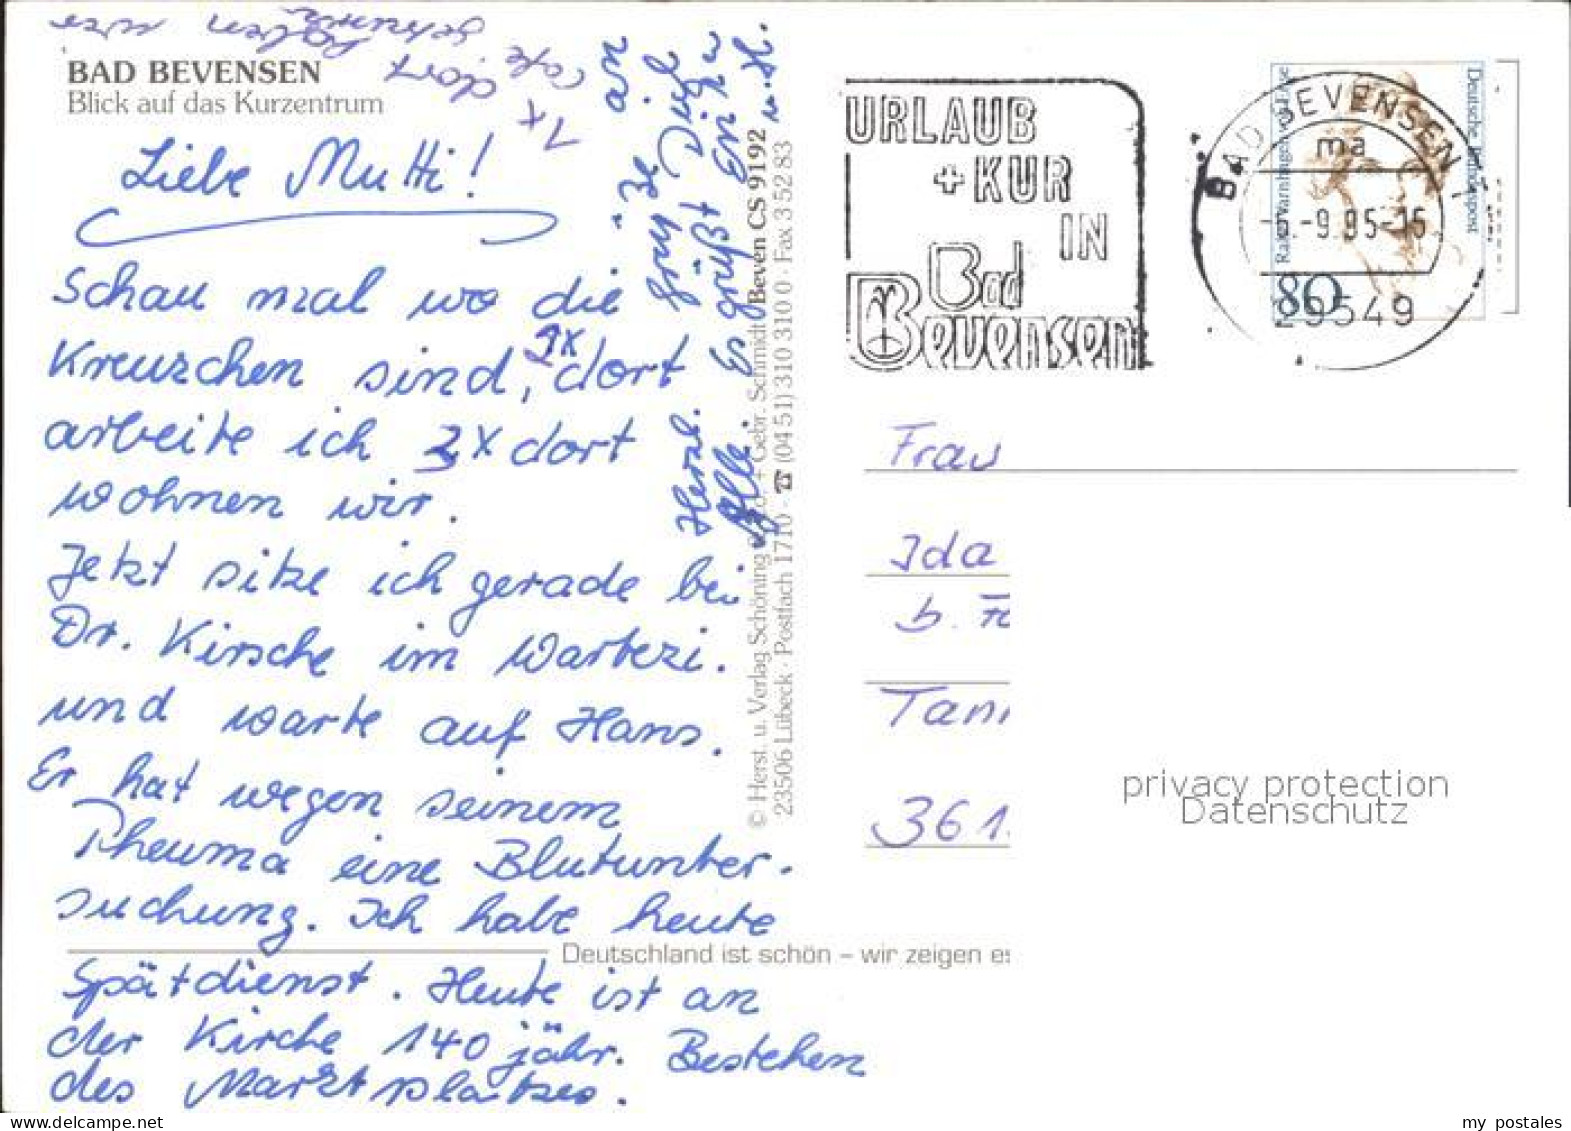 BAD BEVENSEN
Blick auf das Kurzentrum
1x dort
Cafe
haben wir
Liebe Mutti!
Schau mal wo die
Kreuzchen sind, 1x dort
arbeite ich 2x dort
wohnen wir.
Jetzt sitze ich gerade bei
Dr. Kirsche im Wartezi.
und warte auf Hans.
Er hat wegen seinem
Rheuma eine Blutunter-
suchung. Ich habe heute
Spätdienst. Heute ist an
der Kirche 140 jähr. Bestehen
des Marktplatzes.
Herzl. Grüße an
Alle. Es grüßt Dich
Erika u. H.
© Herst. u. Verlag Schöning & Co. + Gebr. Schmidt Beven CS 9192
23506 Lübeck · Postfach 1710 · ☎ (04 51) 310 310 0 · Fax 3 52 83
Deutschland ist schön – wir zeigen es
URLAUB
+ KUR
IN
Bad
Bevensen
BAD BEVENSEN
ma
-9.95-15
29549
Deutsche Bundespost
Rahel Varnhagen von Ense
80
Frau
Ida
b.
Tann
361
privacy protection
Datenschutz
my_postales